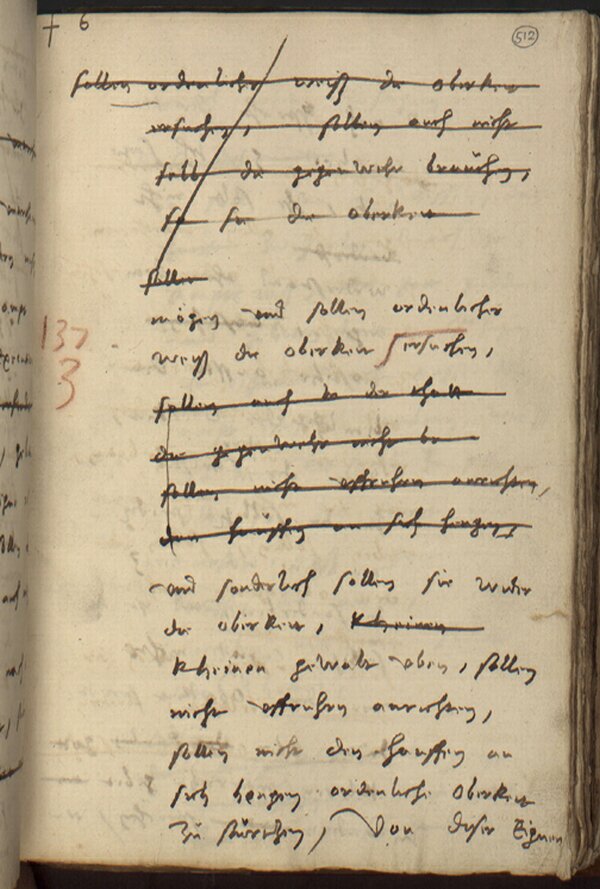 † 6
512
sollen ordenlicher weiß die oberkeit
ersuchen, sollen auch nicht
selb die gegenwehr brauchen,
so sie die oberkeit
sollen
mögen und sollen ordenlicher
weiß die oberkeit ersuchen,
137
3
sollen auch in der thatt
die gegenwehr nicht
sollen nicht auffruhren anrichten,
den hauffen an sich hengen,
und sonderlich sollen sie wider
die oberkeit, kheinen
kheinen gewalt üben, sollen
nicht auffruhren anrichten,
sollen nicht den hauffen an
sich hengen ordenliche oberkeit
zu stürtzen, Von diser Eignen